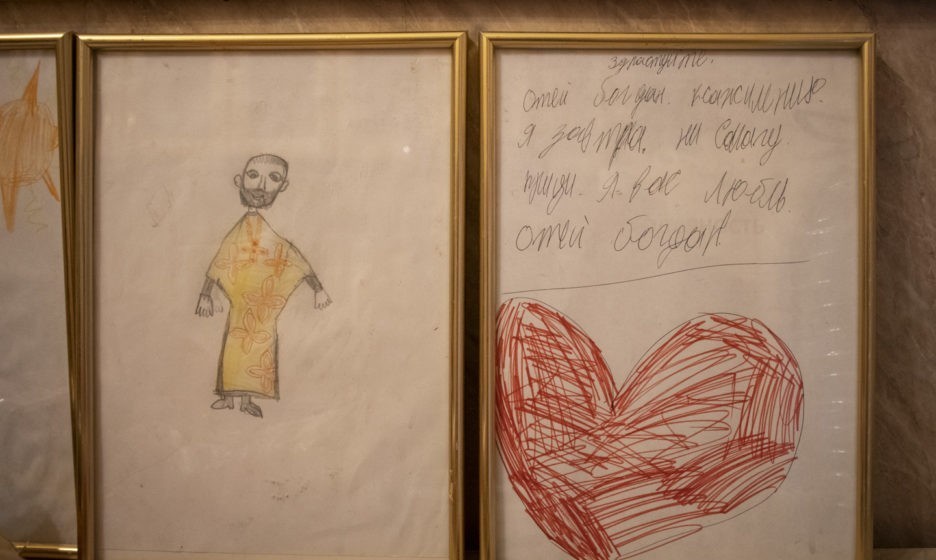 здраствуйте.
отей богдан. ксажилению.
я завтра. ни самагу.
приди. я вас люблю.
отей богдан!